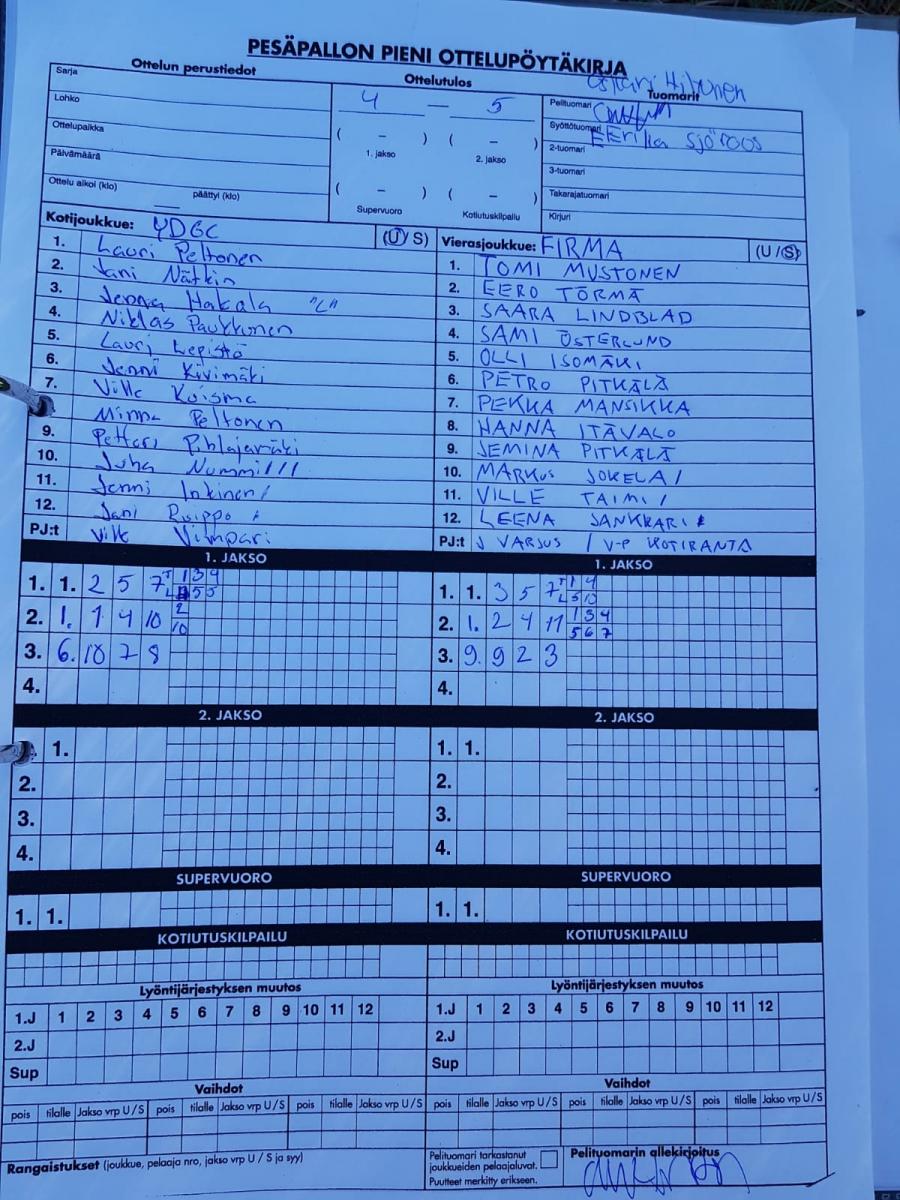 PESÄPALLON PIENI OTTELUPÖYTÄKIRJA
Ottelun perustiedot
Sarja
Lohko
Ottelupaikka
Päivämäärä
Ottelu alkoi (klo) päättyi (klo)
Ottelutulos
4 — 5
( – ) ( – )
1. jakso 2. jakso
( – ) ( – )
Supervuoro Kotiutuskilpailu
Tuomarit
Pelituomari
Syöttötuomari Eerika Sjöroos
2-tuomari
3-tuomari
Takarajatuomari
Kirjuri
Kotijoukkue: YDGC (U / S)
1. Lauri Peltonen
2. Jani Nätkin
3. Jenna Hakala "C"
4. Niklas Paukkunen
5. Lauri Lepistö
6. Jenni Kivimäki
7. Ville Koisma
Minna Peltonen
9. Petteri Pihlajamäki
10. Juha Nummi
11. Jenni Inkinen
12. Jani Ruippo
PJ:t Ville Vimpari
Vierasjoukkue: FIRMA (U / S)
1. TOMI MUSTONEN
2. EERO TÖRMÄ
3. SAARA LINDBLAD
4. SAMI ÖSTERLUND
5. OLLI ISOMÄKI
6. PETRO PITKÄLÄ
7. PEKKA MANSIKKA
8. HANNA ITÄVALO
9. JEMINA PITKÄLÄ
10. MARKUS JOKELA /
11. VILLE TAIMI /
12. LEENA JANKKARI
PJ:t J VARJUS / V-P KOTIRANTA
1. JAKSO
1. 1. 2 5 7 T 1 3 4
L 5 5
2. 1. 1 4 10 2
10
3. 6. 10 7 8
4.
1. JAKSO
1. 1. 3 5 7 T 1 4
L 5 10
2. 1. 2 4 11 1 3 4
5 6 7
3. 9. 9 2 3
4.
2. JAKSO
1.
2.
3.
4.
2. JAKSO
1. 1.
2.
3.
4.
SUPERVUORO
1. 1.
SUPERVUORO
1. 1.
KOTIUTUSKILPAILU
KOTIUTUSKILPAILU
Lyöntijärjestyksen muutos
1.J 1 2 3 4 5 6 7 8 9 10 11 12
2.J
Sup
Lyöntijärjestyksen muutos
1.J 1 2 3 4 5 6 7 8 9 10 11 12
2.J
Sup
Vaihdot
pois tilalle Jakso vrp U / S pois tilalle Jakso vrp U / S pois tilalle Jakso vrp U / S
Vaihdot
pois tilalle Jakso vrp U / S pois tilalle Jakso vrp U / S pois tilalle Jakso vrp U / S
Rangaistukset (joukkue, pelaaja nro, jakso vrp U / S ja syy)
Pelituomari tarkastanut
joukkueiden pelaajaluvat.
Puutteet merkitty erikseen.
Pelituomarin allekirjoitus